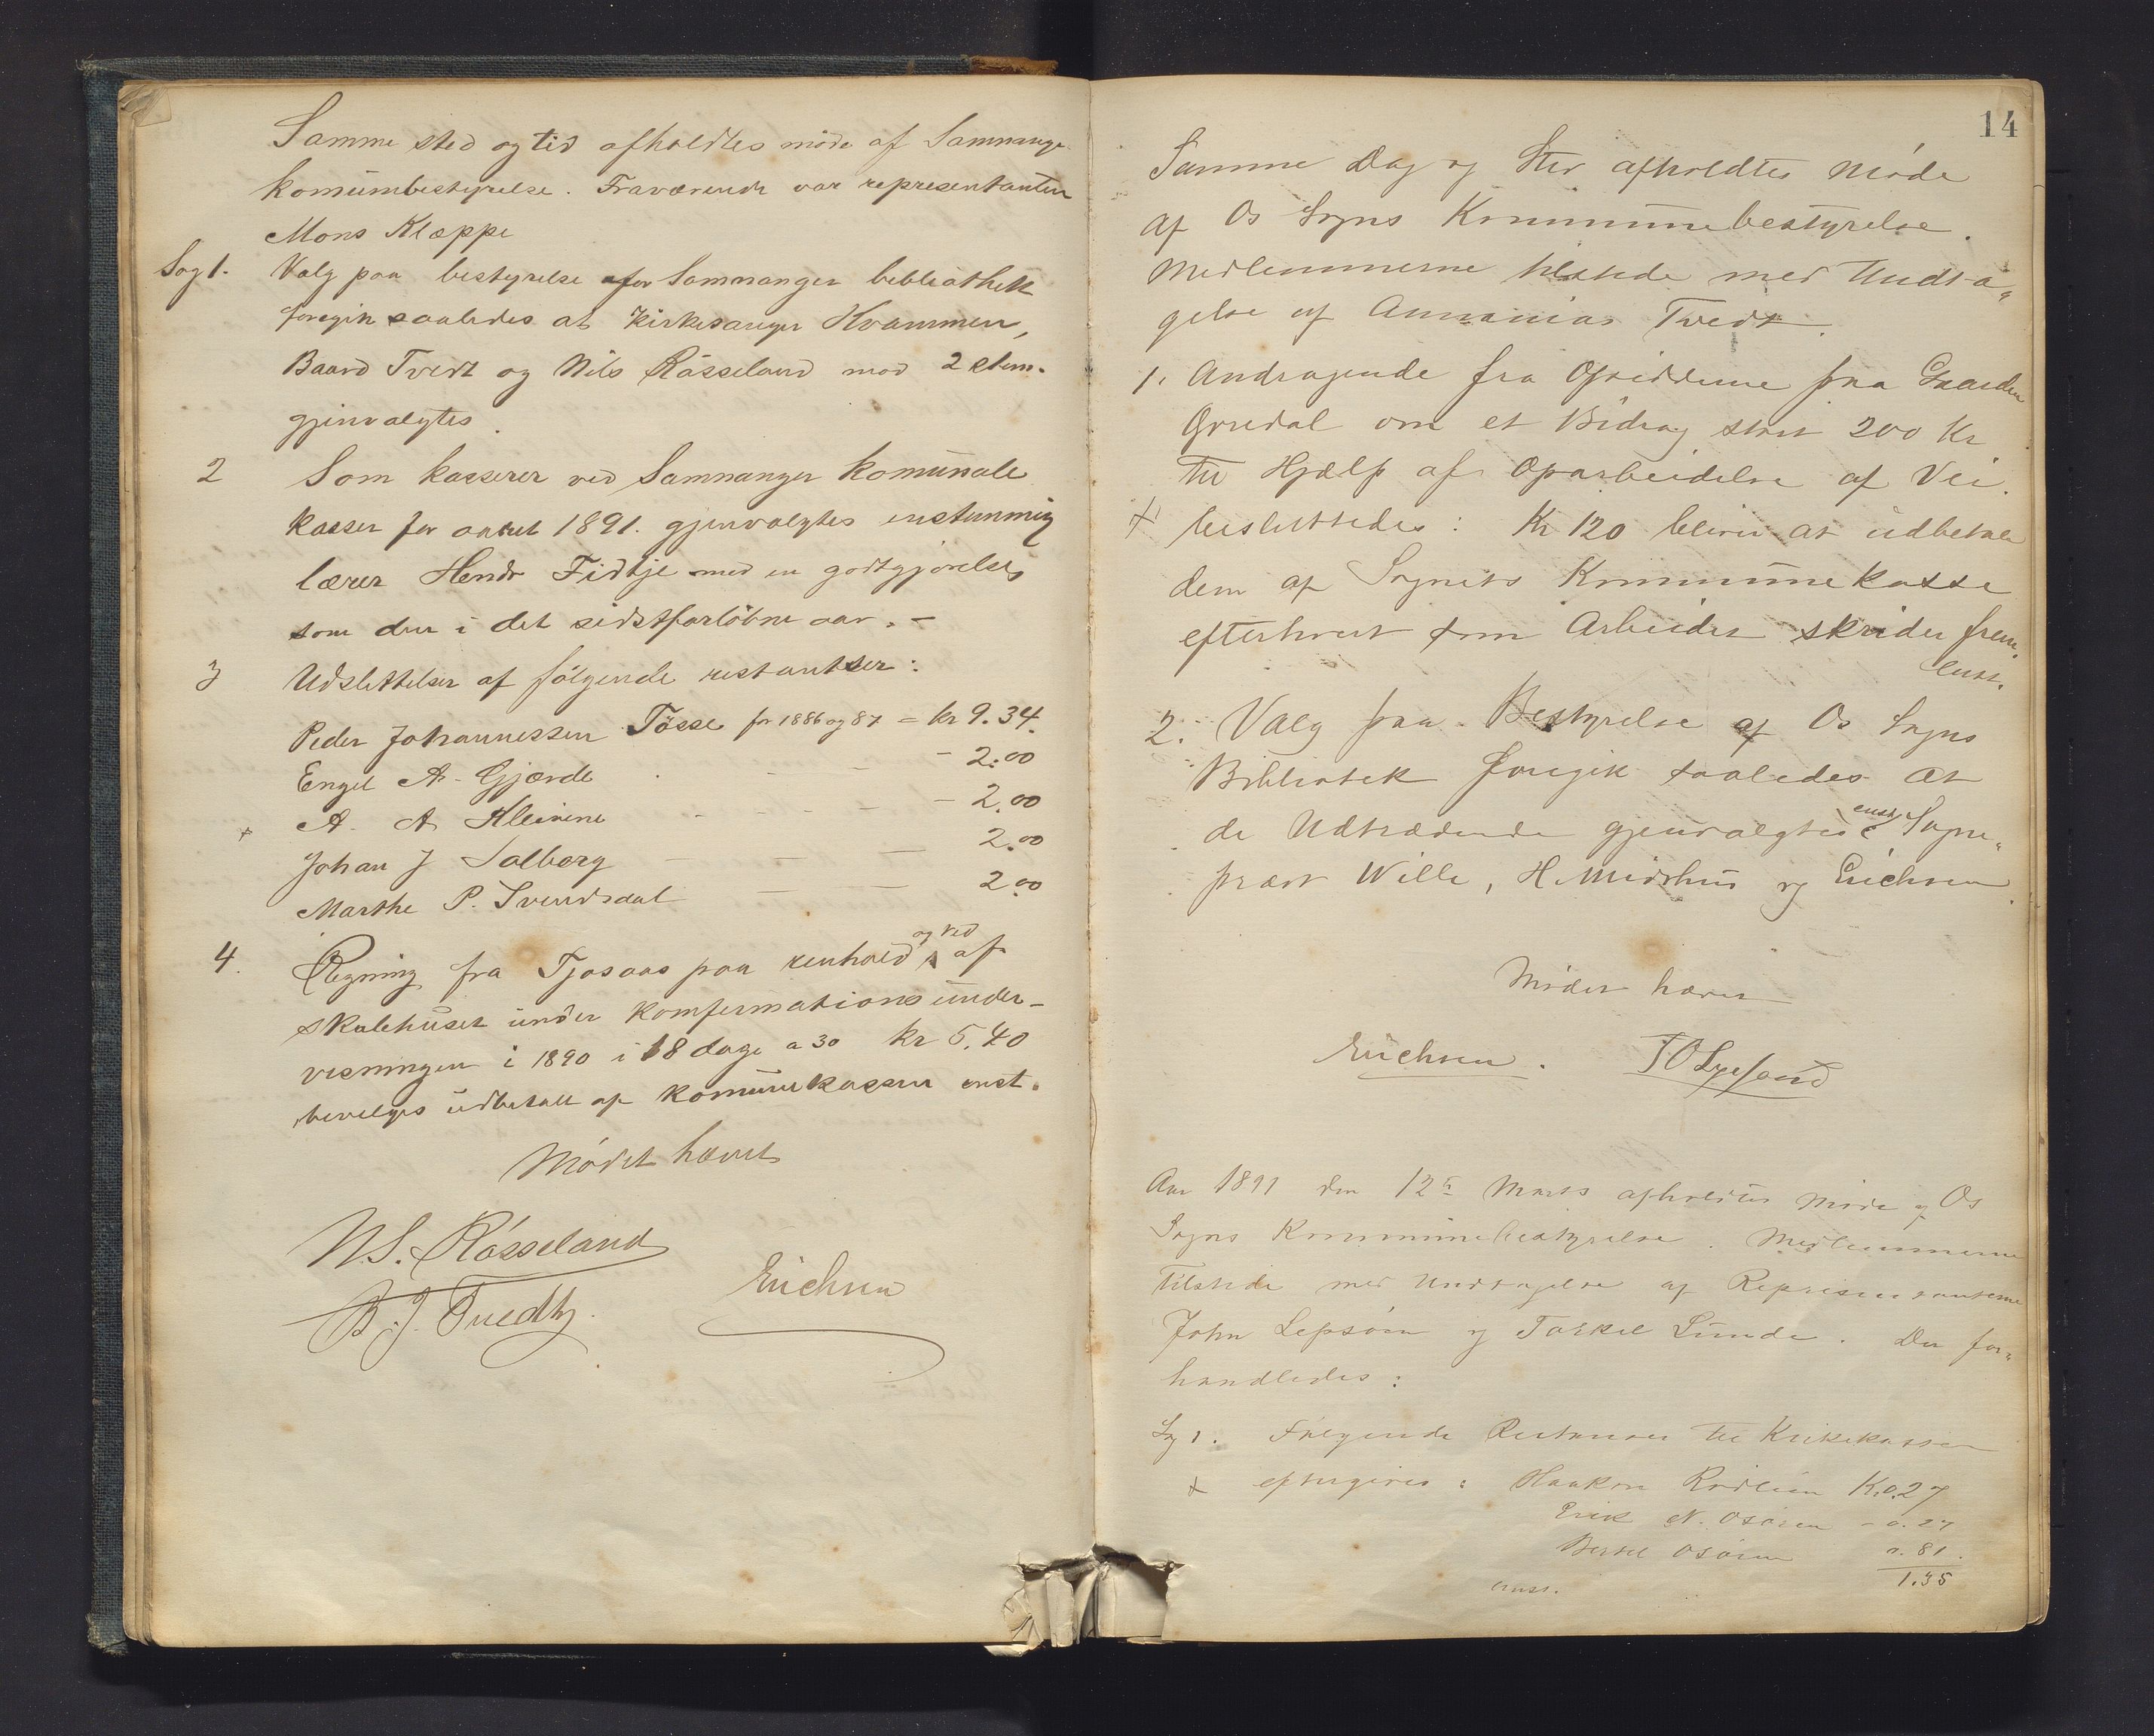 Samme sted og tid afholdtes møde af Samnanger
komünbestyrelse. Fraværende var representanten
Mons Kleppe
Sag 1. Valg paa bestyrelse for Samnanger bibliothek
foregik saaledes at kirkesanger Kvammen,
Baard Tvedt og Nils Røsseland mod 2 stem.
gjenvalgtes.
2 Som kasserer ved Samnanger komünale
kasser for aaret 1891. gjenvalgtes enstemmig
lærer Hendr Fidtje med en godtgjørelse
som den i det sidstforløbne aar. -
3 Udslettelser af følgende restantser:
Peder Johannessen Tøsse for 1886 og 87 = kr 9.34.
Engel A. Gjærde - 2.00
A. A. Kleivene - 2.00
Johan J Solberg 2.00
Marthe P. Svendsdal 2.00
4. Regning fra Tjosaas paa renhold og ved af
skolehüset ünder komfermationsünder-
visningen i 1890 i 18 dage a 30 kr 5.40
bevilges üdbetalt af komünekassen enst.
Mødet hævet
N S. Røsseland
B. J. Tvedt
Erichsen
14
Samme Dag og Sted afholdtes Møde
af Os Sogns Kommünebestyrelse.
Medlemmerne tilstede med Undta-
gelse af Annanias Tvedt.
1. Andragende fra Opsidderne paa Gaarden
om et Bidrag stort 200 Kr
til Hjælp af Oparbeidelse af Vei.
+ besluttedes: Kr 120 bliver at üdbetale
dem af Sognets Kommünekasse
efterhvert som Arbeidet skrider frem.
Enst.
2. Valg paa Bestyrelse af Os Sogns
Bibliotek foregik saaledes at
de Udtrædende gjenvalgtes enst. Sogne-
præst Wille, H. Midthus og Erichsen.
Mødet hævet
Erichsen.
Aar 1891 den 12te Marts afholdtes Møde af Os
Sogns Kommünebestyrelse. Medlemmerne
tilstede med Undtagelse af Repræsentanterne
John Lepsøen og Torkel Lünde. Der for-
handledes:
Sag 1. Følgende Restancer til Kirkekassen
+ eftergives: Haakon Rødlien K. 0.27
Erik N. Osøren - 0.27
Bertel Osøren 0.81.
enst. 1.35